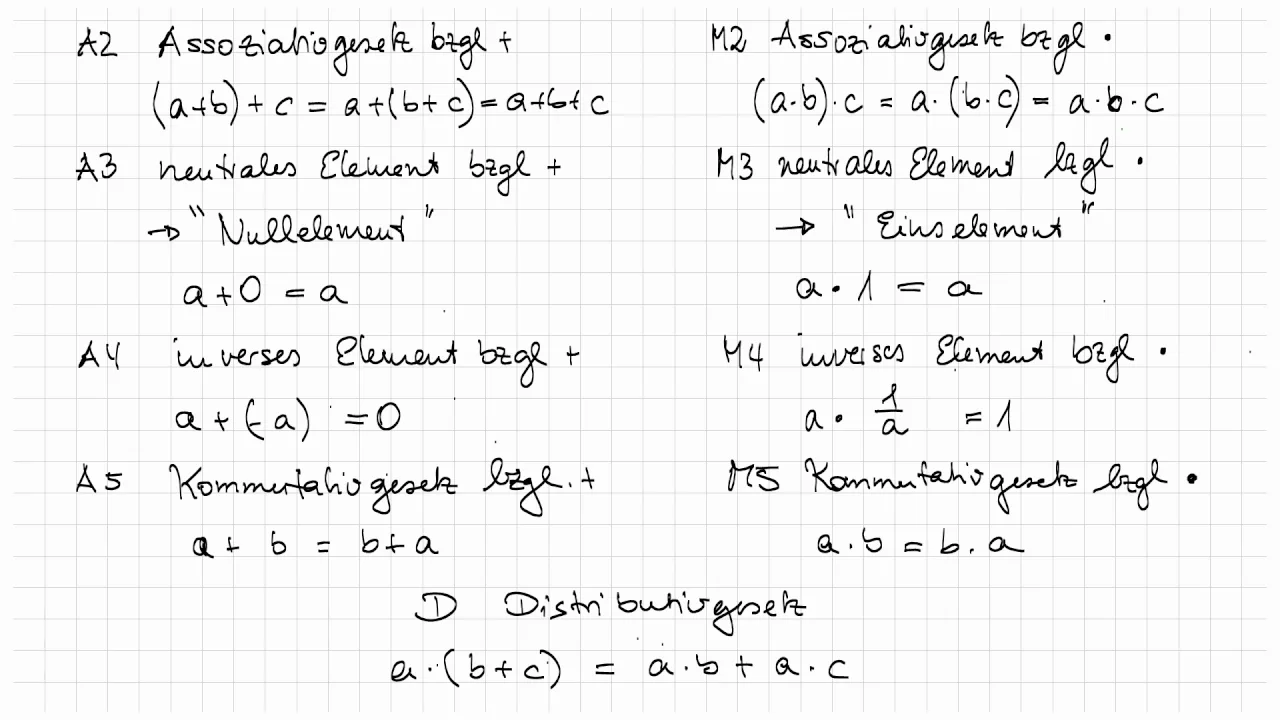 A2 Assoziativgesetz bzgl +
(a+b)+c = a+(b+c) = a+b+c
A3 neutrales Element bzgl +
→ "Nullelement"
a+0 = a
A4 inverses Element bzgl +
a+(-a) = 0
A5 Kommutativgesetz bzgl. +
a + b = b+a
M2 Assoziativgesetz bzgl ·
(a·b)·c = a·(b·c) = a·b·c
M3 neutrales Element bzgl ·
→ "Einselement"
a·1 = a
M4 inverses Element bzgl ·
a · 1/a = 1
M5 Kommutativgesetz bzgl ·
a·b = b·a
D Distributivgesetz
a·(b+c) = a·b + a·c